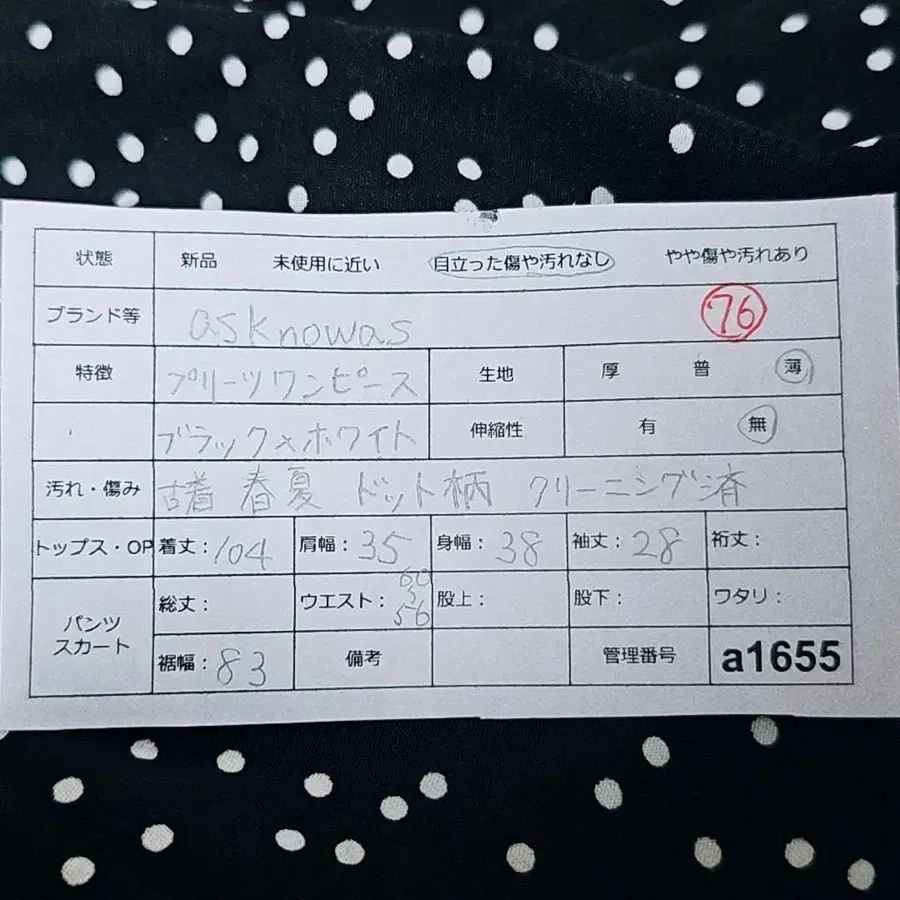 状態 新品 未使用に近い 目立った傷や汚れなし やや傷や汚れあり
ブランド等 asknowas '76
特徴 プリーツワンピース 生地 厚 普 薄
ブラック×ホワイト 伸縮性 有 無
汚れ・傷み 古着 春夏 ドット柄 クリーニング済
トップス・OP 着丈:104 肩幅:35 身幅:38 袖丈:28 裄丈:
パンツ スカート 総丈: ウエスト:60 56 股上: 股下: ワタリ:
裾幅:83 備考 管理番号 a1655